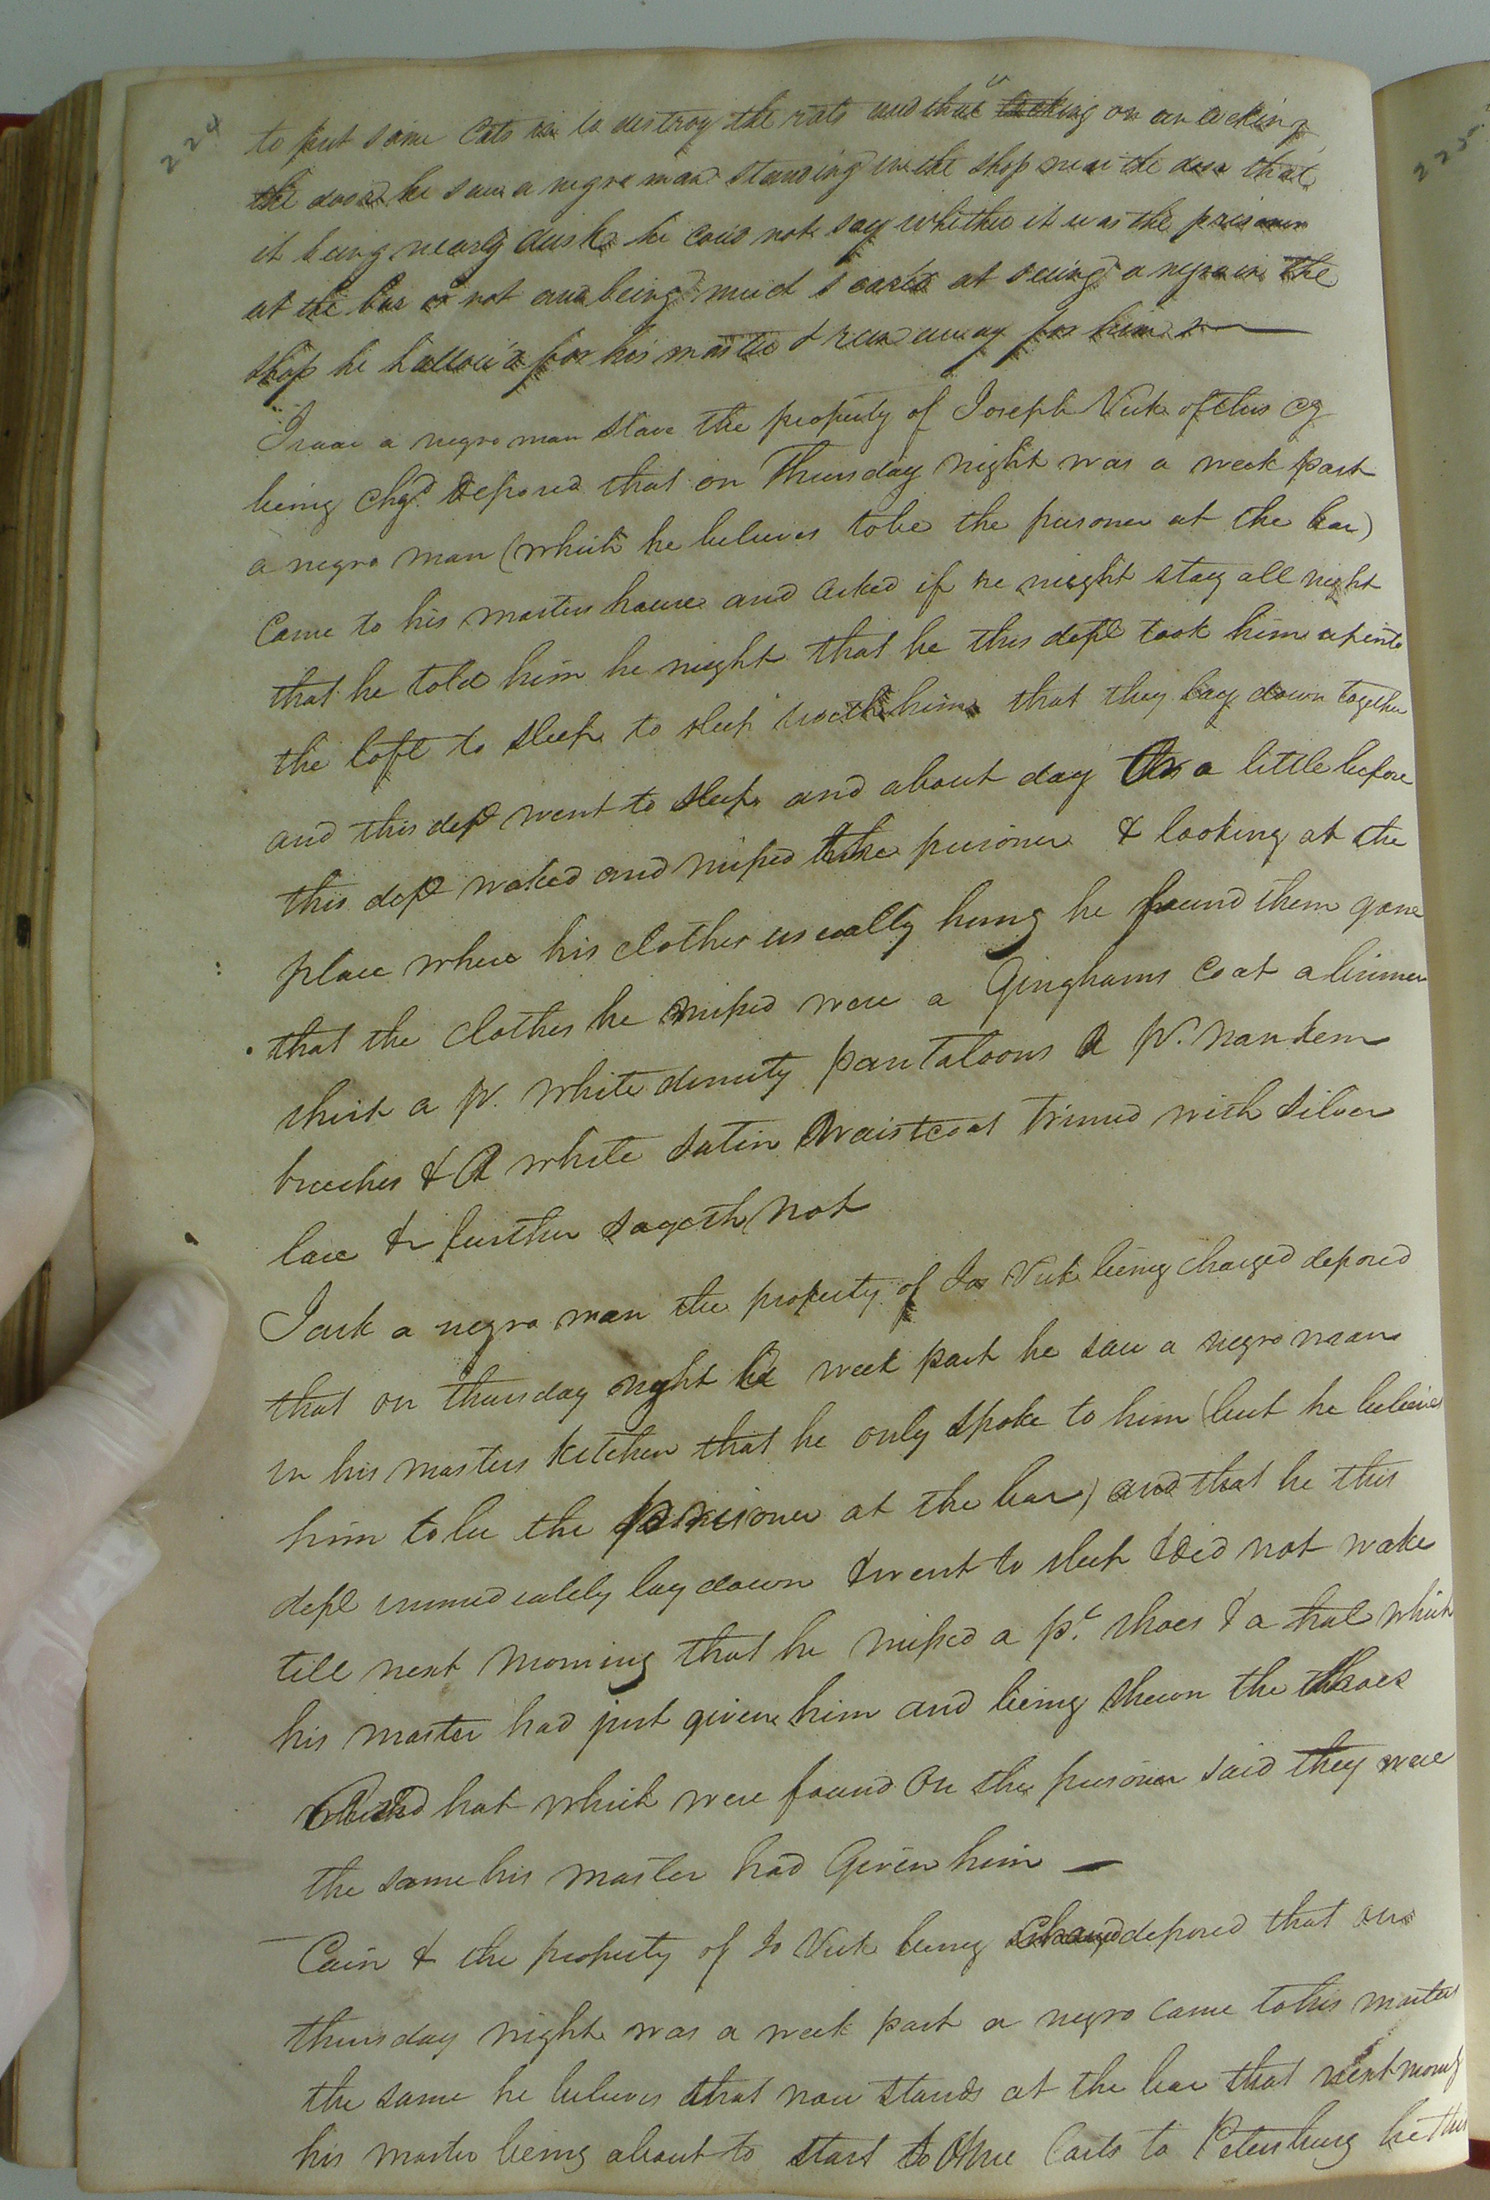 224
to put some Cats in to destroy the rats and that looking on unlocking
the door he saw a negro man standing in the shop near the door that
it being nearly dusk he coud not say whether it was the prisoner
at the bar or not and being much scared at seeing a negro in the
shop he hallow'd for his master & ran away for him
Isaac a negro man slave the property of Joseph Vick of this Cy
being chgd. deposed that on Thursday night was a week past
a negro man (which he believes to be the prisoner at the bar)
Came to his masters house and asked if he might stay all night
that he told him he might that he this dept took him up into
the loft to sleep to sleep with him that they lay down together
and this dept went to sleep and about day Or a little before
this dept waked and missed the prisoner & looking at the
place where his clothes usually hung he found them gone
that the clothes he missed were a Ginghams Coat a linnen
shirt a pr. white dimity pantaloons A pr. Nankeen
breeches & A white satin Waistcoat trimed with silver
lace & further sayeth not
Jack a negro man the property of Jos Vick being charged deposed
that on thursday night week past he saw a negro man
in his masters kitchen that he only spoke to him (but he believes
him to be the prisoner at the bar) and that he this
dept immediately lay down & went to sleep & did not wake
till next morning that he missed a pr. shoes & a hat which
his master had just given him and being shewn the shoes
and hat which were found On the prisoner said they were
the same his master had Given him —
Cain & the property of Jo Vick being Charged deposed that on
thursday night was a week past a negro came to his masters
the same he believes that now stands at the bar that next morng
his master being about to start to Carts to Petersburg he this
225